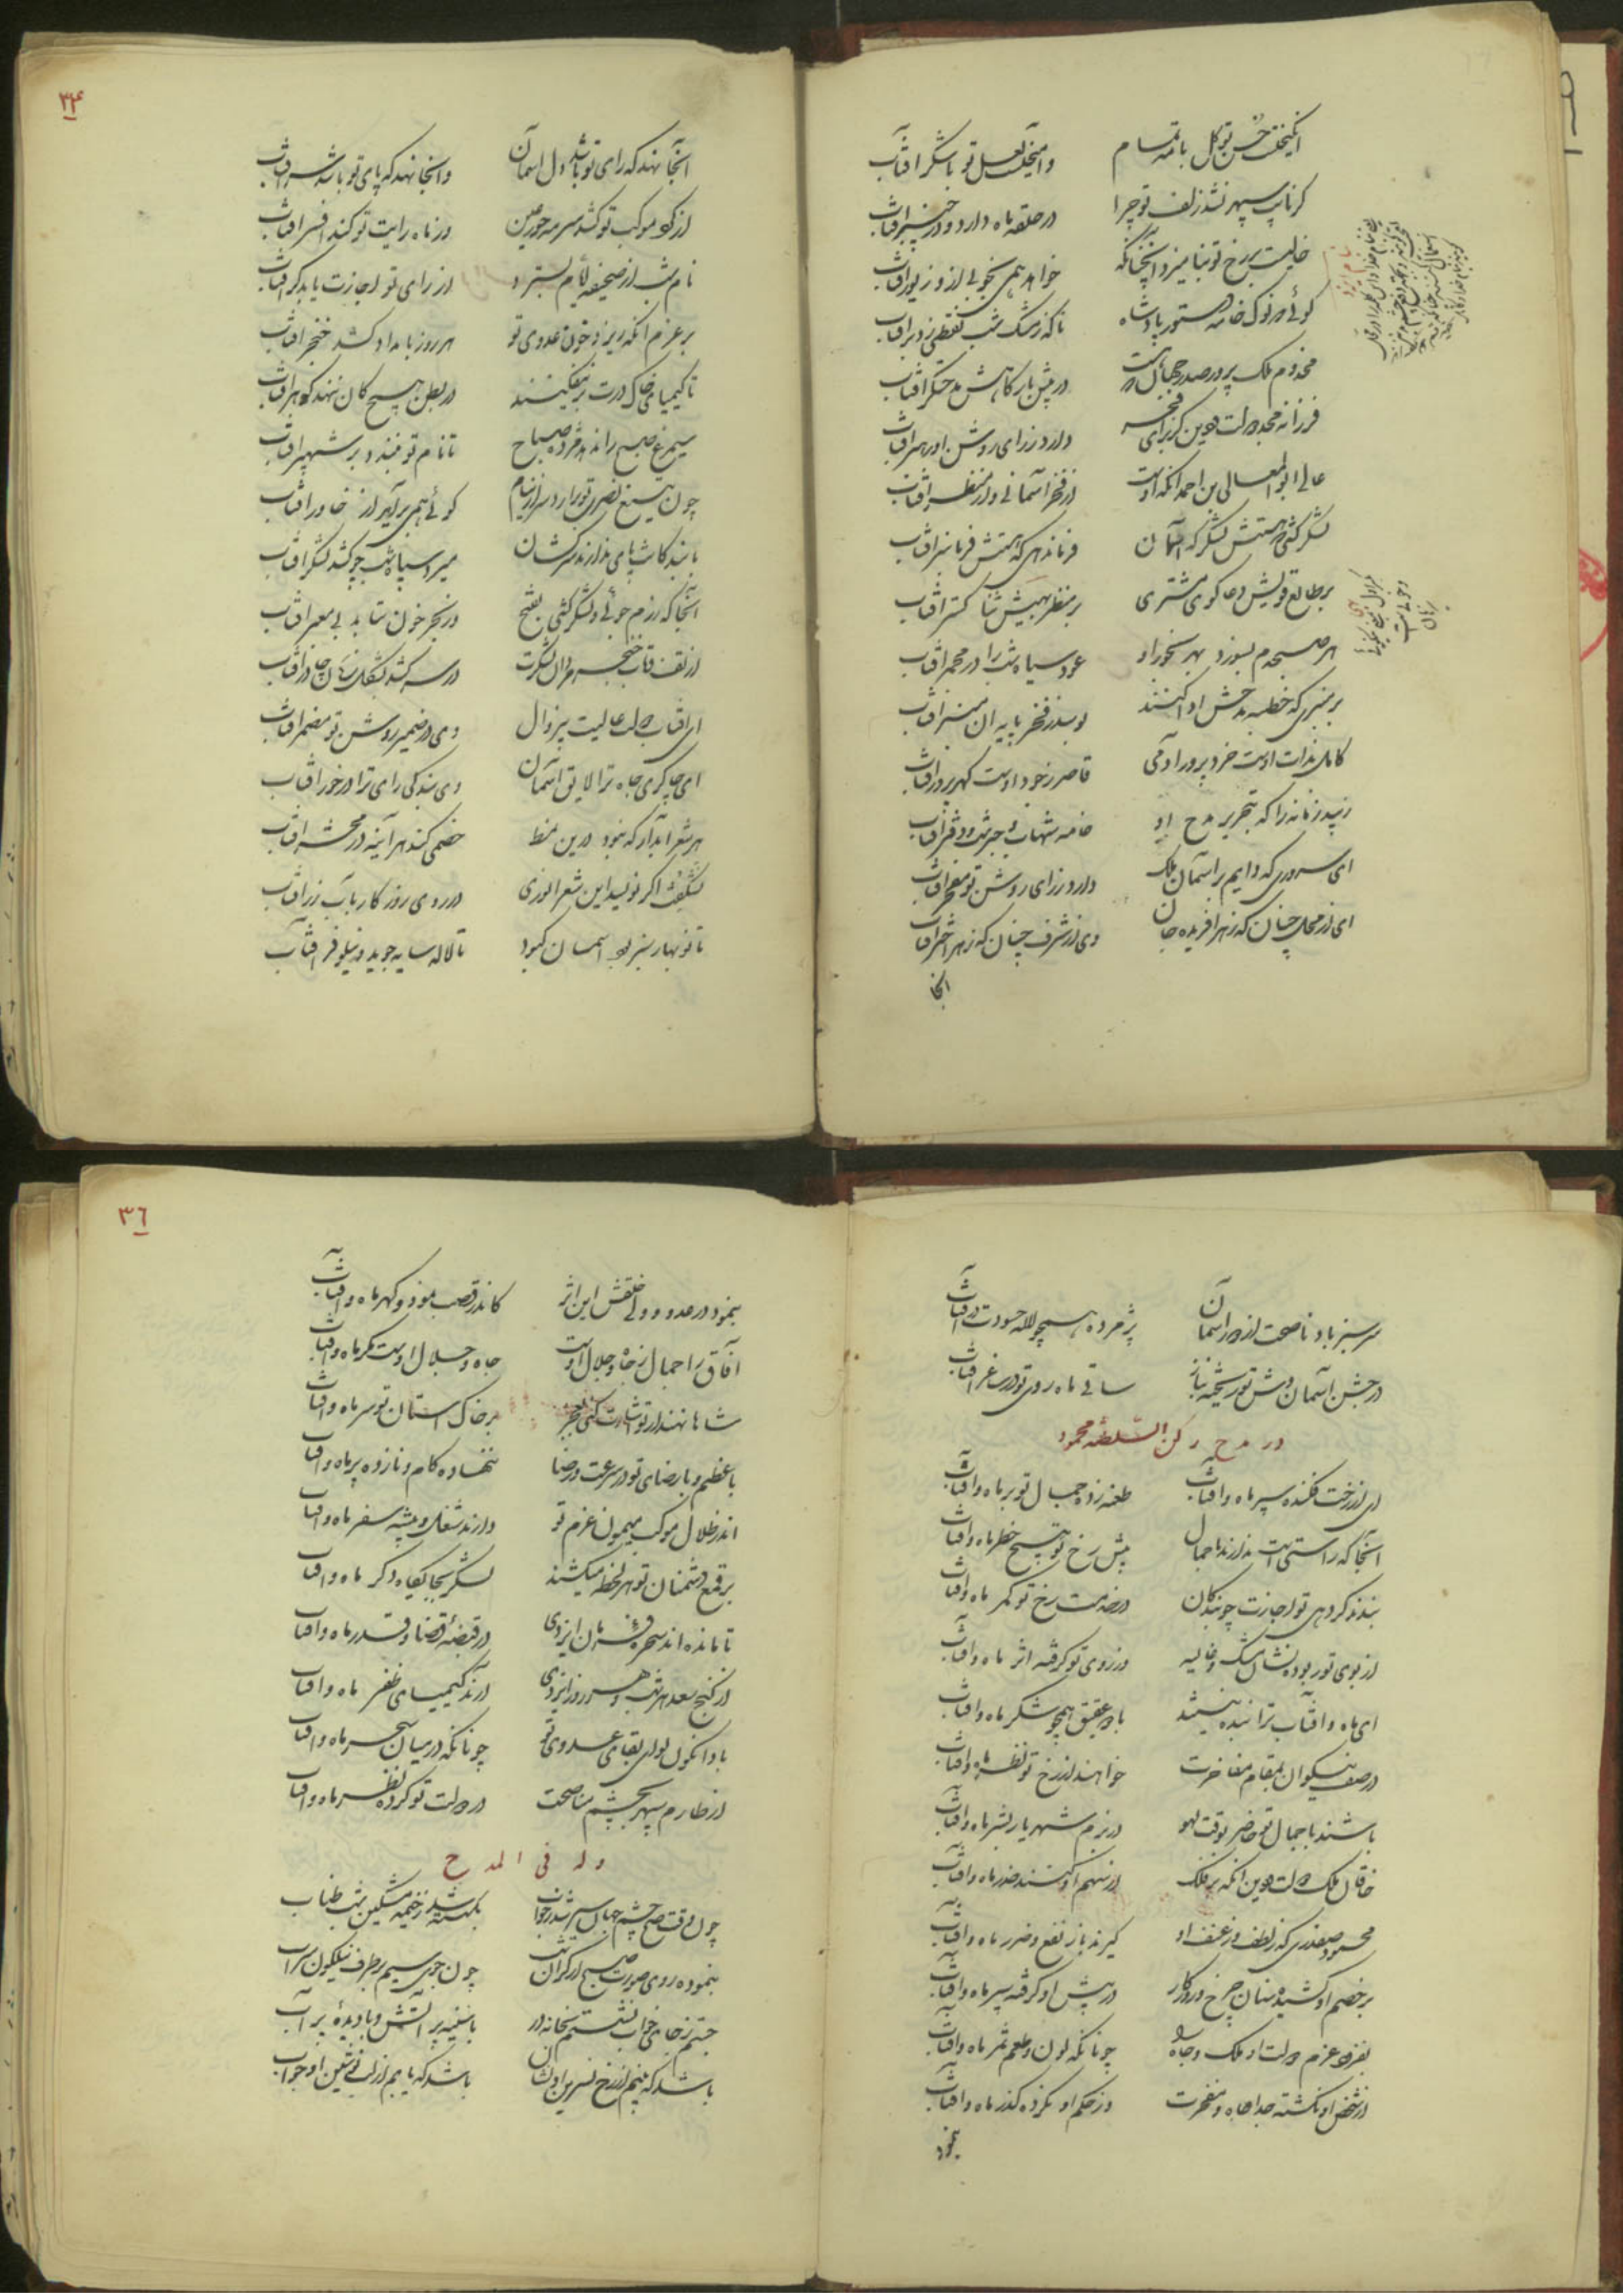 انگیخت حسن تو گل با مه تمام
وامیخت لعل تو با شکر آفتاب
گر نایب سپهر نشد زلف تو چرا
در حلقه ماه دارد و در چنبر آفتاب
خالیست بر رخ تو بنامیزد آنچنانکه
خواهد همی بخوبی از و زیور آفتاب
گوئی که نوک خامه دستور پادشاه
ناگه ز مشک شب نقطی زد بر آفتاب
مخدوم ملک پرور صدر جهان که هست
در پیش بارگاهش مدحتگر آفتاب
فرزانه مجد دولت و دین کز برای فخر
دارد ز رای روشن او رهبر آفتاب
عالی ابو المعالی بن احمد آنکه اوست
از فخر آسمانی و از منظر آفتاب
لشکر کشی که هستش لشکرکه آسمان
فرماندهی که هستش فرمانبر آفتاب
بر طالع قویش دعا گوی مشتری
بر منظر بهیش ثنا گستر آفتاب
هر صبحدم بسوزد بهر بخور او
عود سیاه شب را در مجمر آفتاب
بر منبری که خطبه مدحش ادا کنند
بوسد ز فخر پایه آن منبر آفتاب
کامل بذات اوست خرد پرور آدمی
قاصر ز جود اوست گهر پرور آفتاب
زیبد زمانه را که بتحریر مدح او
خامه شهاب و حبر شب و دفتر آفتاب
ای سروری که دایم بر آسمان ملک
دارد ز رای روشن تو مفخر آفتاب
ای از محل چنان که زهر آفریده جان
وی از شرف چنان که زهر اختر آفتاب
آنجا
۳۴
آنجا نهد که رای تو باشد دل آسمان
وانجا نهد که پای تو باشد سر آفتاب
از گرد موکب تو کشد سرمه حور عین
وز ماه رایت تو کند افسر آفتاب
نام شب از صحیفه ایام بسترد
از رای تو اجازت یابد گر آفتاب
بر عزم آنکه ریزد خون عدوی تو
هر روز بامداد کشد خنجر آفتاب
تا کیمیای خاک درت بر نیفکنند
در بطن هیچ کان ننهد گوهر آفتاب
سیمرغ صبح را ندهد مژده صباح
تا نام تو نبندد بر شهپر آفتاب
چون تیغ نصرت تو برآرد سر از نیام
گوئی همی برآید از خاور آفتاب
با بندگانت پای ندارند سرکشان
میرد سپاه شب چو کشد لشکر آفتاب
آنجا که رزم جوئی و لشکر کشی بفتح
در بحر خون نتابد بی معبر آفتاب
از تف تاب خنجر مردان لشکرت
در سر کشد بشکل زنان چادر آفتاب
ای آفتاب دولت عالیت بی زوال
وی در ضمیر روشن تو مضمر آفتاب
ای چاکری جاه ترا لایق آسمان
وی بندگی رای ترا در خور آفتاب
هر شعر آبدار که نبود درین نمط
خصمی کند هر آینه در محشر آفتاب
نشگفت اگر نویسد این شعر انوری
در روی روزگار بآب زر آفتاب
تا نوبهار سبز بود آسمان کبود
تا لاله سایه جوید و نیلوفر آفتاب
سرسبز باد ناصحت از دور آسمان
پژمرده همچو لاله حسودت در آفتاب
در جشن آسمان وش تو ریخته بناز
ساقی ماه روی تو در ساغر آفتاب
در مدح رکن السلطنه محمود
ای از رخت فکنده سپر ماه و آفتاب
طعنه زده جمال تو بر ماه و آفتاب
آنجا که راستی است ندارند با جمال
پیش رخ تو هیچ خطر ماه و آفتاب
بندند گر دهی تو اجازت چو بندگان
در خدمت رخ تو کمر ماه و آفتاب
از بوی تو ربوده نشان مشک و غالیه
وز روی تو گرفته اثر ماه و آفتاب
ای ماه و آفتاب ترا بنده نبشند
با دو عقیق همچو شکر ماه و آفتاب
در صف نیکوان بمقام مفاخرت
خواهند از رخ تو نظر ماه و آفتاب
باشند با جمال تو حاضر بوقت لهو
در بزم شهریار بشر ماه و آفتاب
خاقان ملک دولت و دین آنکه بر فلک
از سهم او کنند حذر ماه و آفتاب
محمود صفدری که ز لطف و ز عنف او
گیرند باز نفع و ضرر ماه و آفتاب
بر خصم او کشیده سنان چرخ و روزگار
در پیش او گرفته سپر ماه و آفتاب
بفزود عزم دولت او ملک و جاه را
چونانکه لون و طعم ثمر ماه و آفتاب
از شخص او نگشته جدا جاه و مفخرت
وز حکم او نکرده گذر ماه و آفتاب
بنمود
۳۶
بنمود در عدو و ولی خلقش این اثر
کاندر قصب نمود و گهر ماه و آفتاب
آفاق را جمال ز جاه و جلال اوست
جاه و جلال اوست مگر ماه و آفتاب
شاها نهند ار تو اشارت کنی بفخر
بر خاک آستان تو سر ماه و آفتاب
با عظم و با رضای تو در سرعت و رضا
ننهاده کام و نا زده پر ماه و آفتاب
اندر ظلال موکب میمون عزم تو
دارند شغل و پیشه سفر ماه و آفتاب
بر قمع دشمنان تو هر لحظه میکشند
لشکر بجایگاه دگر ماه و آفتاب
تا مانده‌اند سخره فرمان ایزدی
در قبضه قضا و قدر ماه و آفتاب
از گنج سعد هر شب و هر روز ایزدی
آرند کیمیای ظفر ماه و آفتاب
بادا نگون لوای بقای عدوی تو
چونانکه در میان شجر ماه و آفتاب
از طارم سپهر بچشم مناصحت
در دولت تو کرده نظر ماه و آفتاب
وله فی المدح
چون وقت صبح چشم جهان سیر شد ز خواب
بگسسته شد ز خیمه مشکین شب طناب
بنموده روی صورت صبح از کران شب
چون جوی سیم بر طرف نیلگون سراب
جستم ز جای خواب نشستم بخانه در
با سینه پر آتش و با دیده پر آب
باشد که بینم از رخ نسرین او نشان
باشد که یابم از لب نوشین او جواب